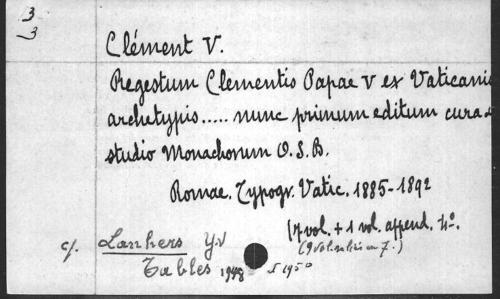 3
3
Clément V.
Regestum Clementis Papae V ex Vaticanis
archetypis..... nunc primum editum cura &
studio Monachorum O.S.B.
Romae. Typogr. Vatic. 1885-1892
7 vol. + 1 vol. append. 4°.
(9 vol. reliés en 7.)
cf. Lanhers Y.V
Tables 1948 1950